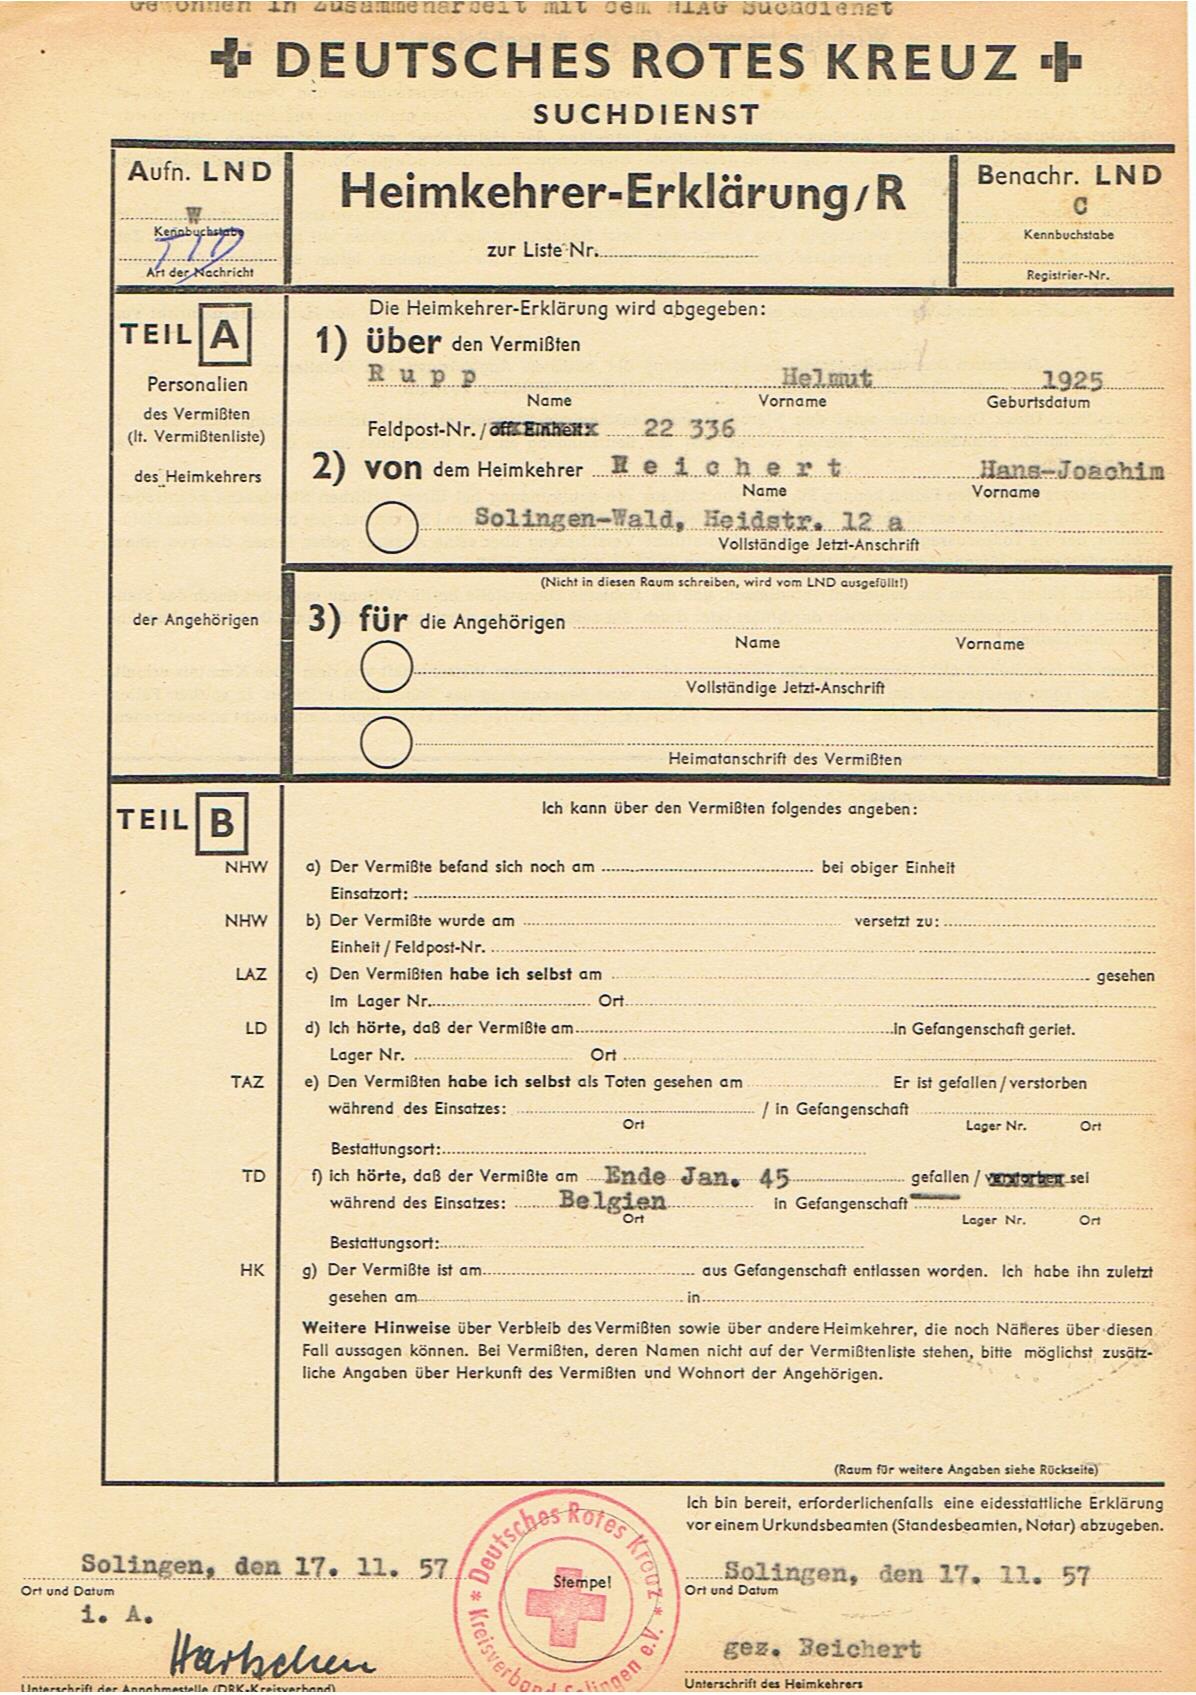 Gewonnen in Zusammenarbeit mit dem HIAG Suchdienst
DEUTSCHES ROTES KREUZ
SUCHDIENST
Aufn. LND
W
Kennbuchstabe
TD
Art der Nachricht
Heimkehrer-Erklärung/R
zur Liste Nr.
Benachr. LND
C
Kennbuchstabe
Registrier-Nr.
TEIL A
Personalien
des Vermißten
(lt. Vermißtenliste)
des Heimkehrers
der Angehörigen
Die Heimkehrer-Erklärung wird abgegeben:
1) über den Vermißten
Rupp Helmut 1925
Name Vorname Geburtsdatum
Feldpost-Nr./off. Einheit: 22 336
2) von dem Heimkehrer Reichert Hans-Joachim
Name Vorname
Solingen-Wald, Heidstr. 12 a
Vollständige Jetzt-Anschrift
(Nicht in diesen Raum schreiben, wird vom LND ausgefüllt!)
3) für die Angehörigen
Name Vorname
Vollständige Jetzt-Anschrift
Heimatanschrift des Vermißten
TEIL B
Ich kann über den Vermißten folgendes angeben:
NHW a) Der Vermißte befand sich noch am bei obiger Einheit
Einsatzort:
NHW b) Der Vermißte wurde am versetzt zu:
Einheit / Feldpost-Nr.
LAZ c) Den Vermißten habe ich selbst am gesehen
Im Lager Nr. Ort
LD d) Ich hörte, daß der Vermißte am in Gefangenschaft geriet.
Lager Nr. Ort
TAZ e) Den Vermißten habe ich selbst als Toten gesehen am Er ist gefallen / verstorben
während des Einsatzes: / in Gefangenschaft
Ort Lager Nr. Ort
Bestattungsort:
TD f) ich hörte, daß der Vermißte am Ende Jan. 45 gefallen / verstorben sei
während des Einsatzes: Belgien in Gefangenschaft
Ort Lager Nr. Ort
Bestattungsort:
HK g) Der Vermißte ist am aus Gefangenschaft entlassen worden. Ich habe ihn zuletzt
gesehen am in
Weitere Hinweise über Verbleib des Vermißten sowie über andere Heimkehrer, die noch Näheres über diesen
Fall aussagen können. Bei Vermißten, deren Namen nicht auf der Vermißtenliste stehen, bitte möglichst zusätz-
liche Angaben über Herkunft des Vermißten und Wohnort der Angehörigen.
(Raum für weitere Angaben siehe Rückseite)
Ich bin bereit, erforderlichenfalls eine eidesstattliche Erklärung
vor einem Urkundsbeamten (Standesbeamten, Notar) abzugeben.
Solingen, den 17. 11. 57
Ort und Datum
i. A.
Hartschen
Unterschrift der Annahmestelle (DRK-Kreisverband)
Deutsches Rotes Kreuz
Stempel
Kreisverband Solingen e.V.
Solingen, den 17. 11. 57
Ort und Datum
gez. Reichert
Unterschrift des Heimkehrers